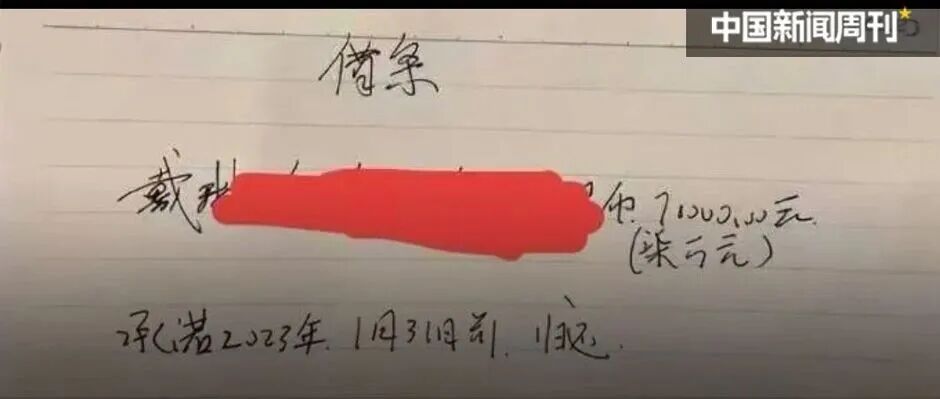 中国新闻周刊
借条
戴
币 71000.00元
(柒万元)
承诺2023年1月31日前归还